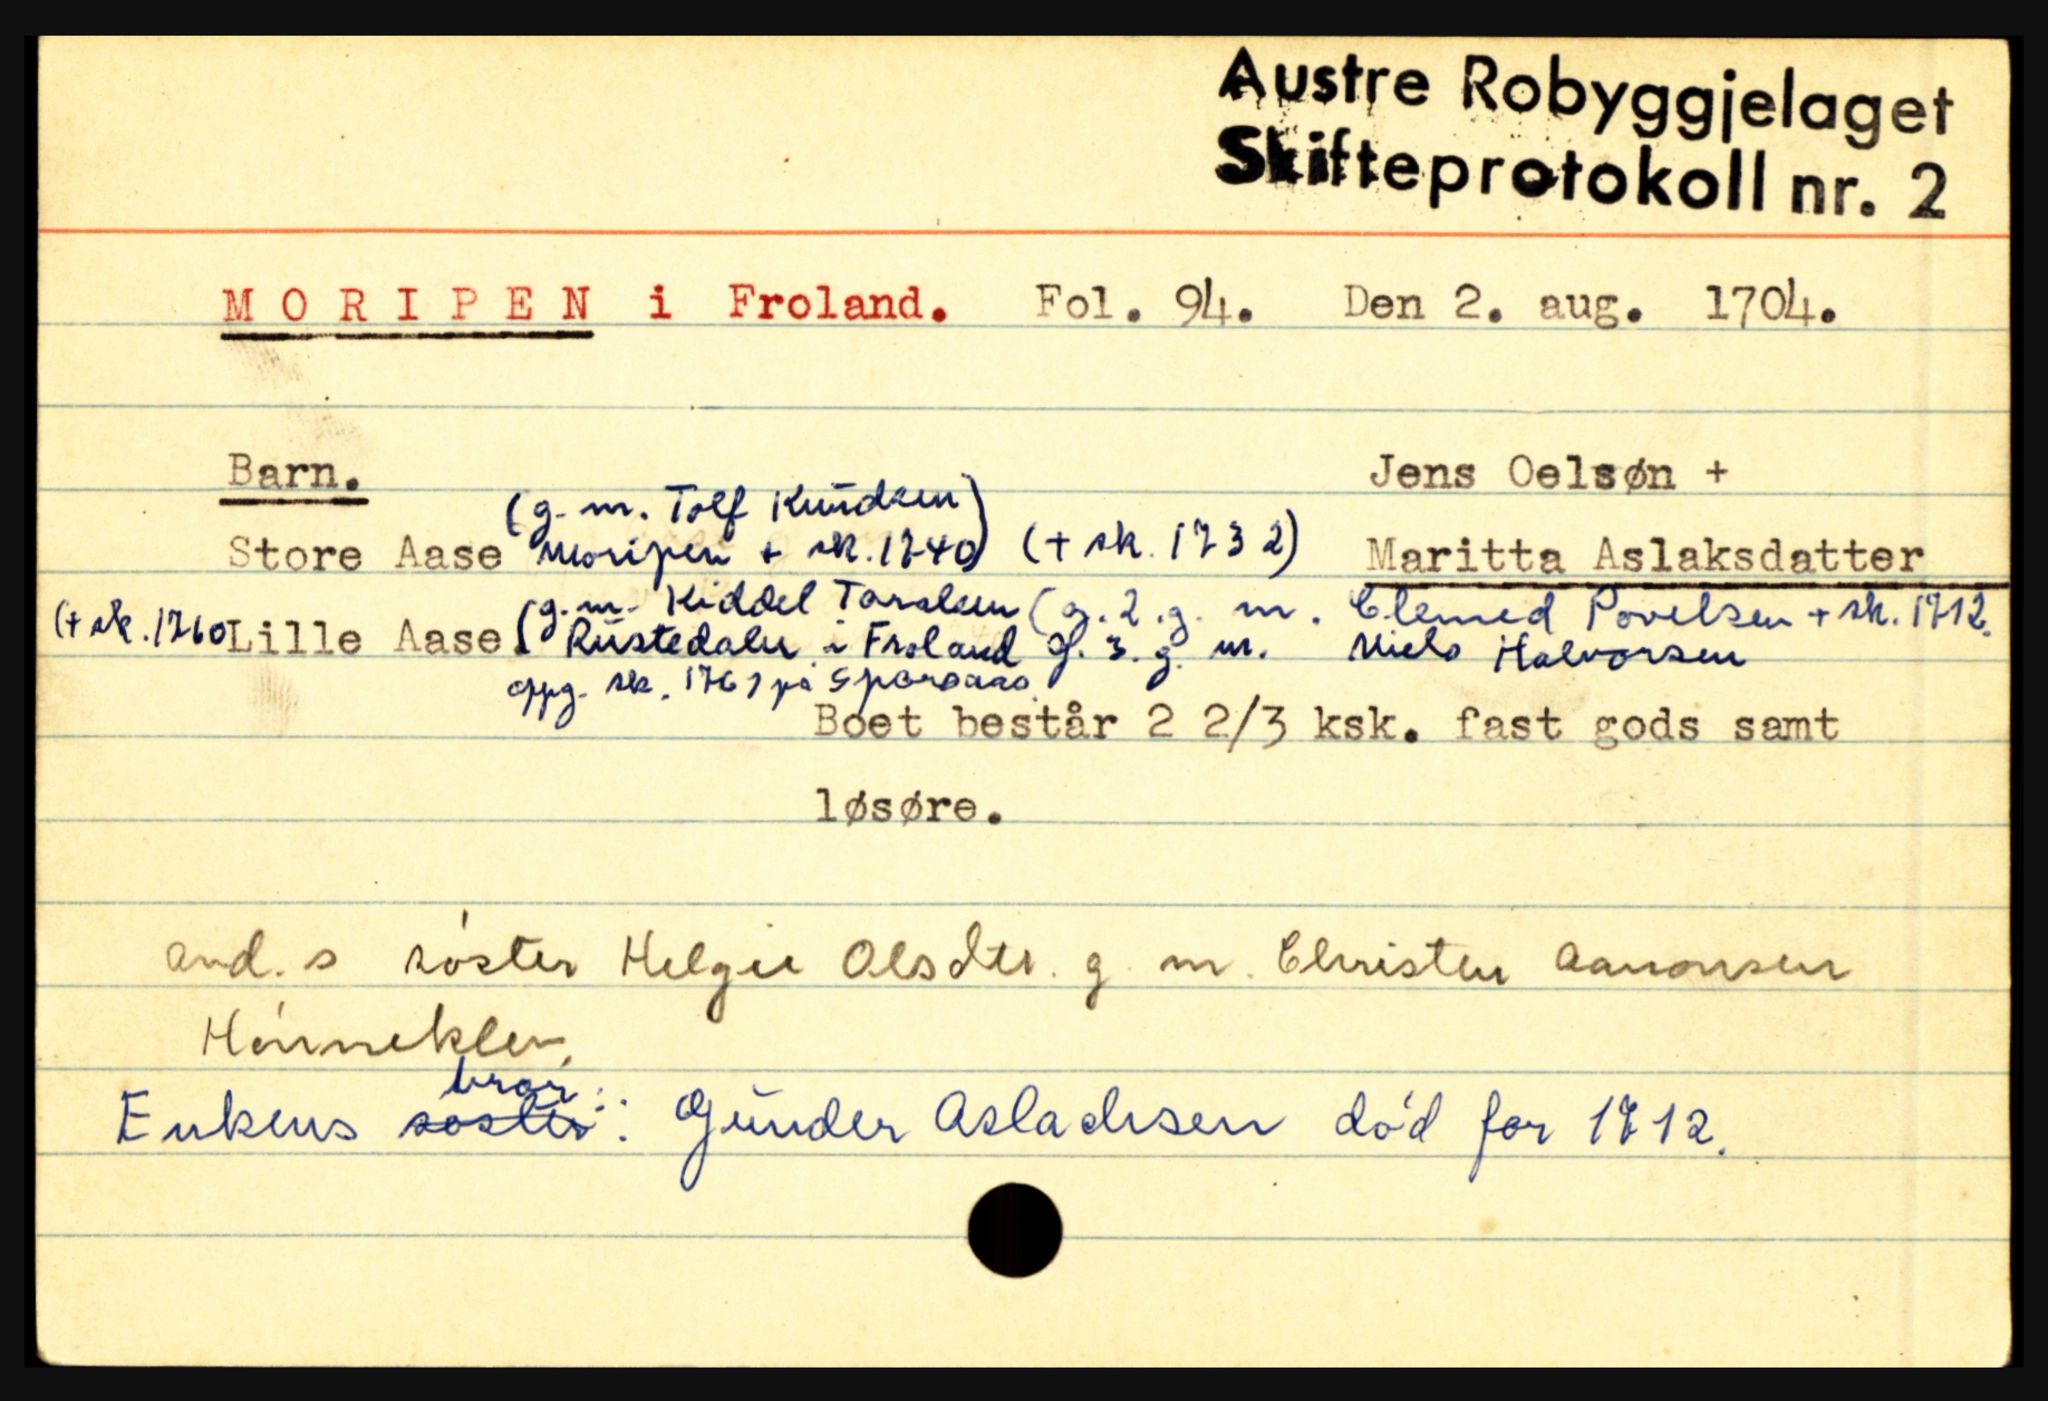 Austre Robyggjelaget
Skifteprotokoll nr. 2
MORIPEN i Froland. Fol. 94. Den 2. aug. 1704.
Barn. Jens Oelsøn +
(g. m. Tolf Knudsen
Store Aase Moripen + sk. 1740) (+ sk. 1732) Maritta Aslaksdatter
(g. m. Kiddel Tarolsen (g. 2. g. m. Clemed Povelsen + sk. 1712.
(+ sk. 1760 Lille Aase. Rustedalen i Froland g. 3. g. m. Niels Halvorsen
oppg. sk. 1761 på
Boet består 2 2/3 ksk. fast gods samt
løsøre.
avd. s søster Helgie Olsdtr. g. m. Christen Aanonsen
Hønneklev.
bror
Enkens søster: Gunder Aslachsen død før 1712.